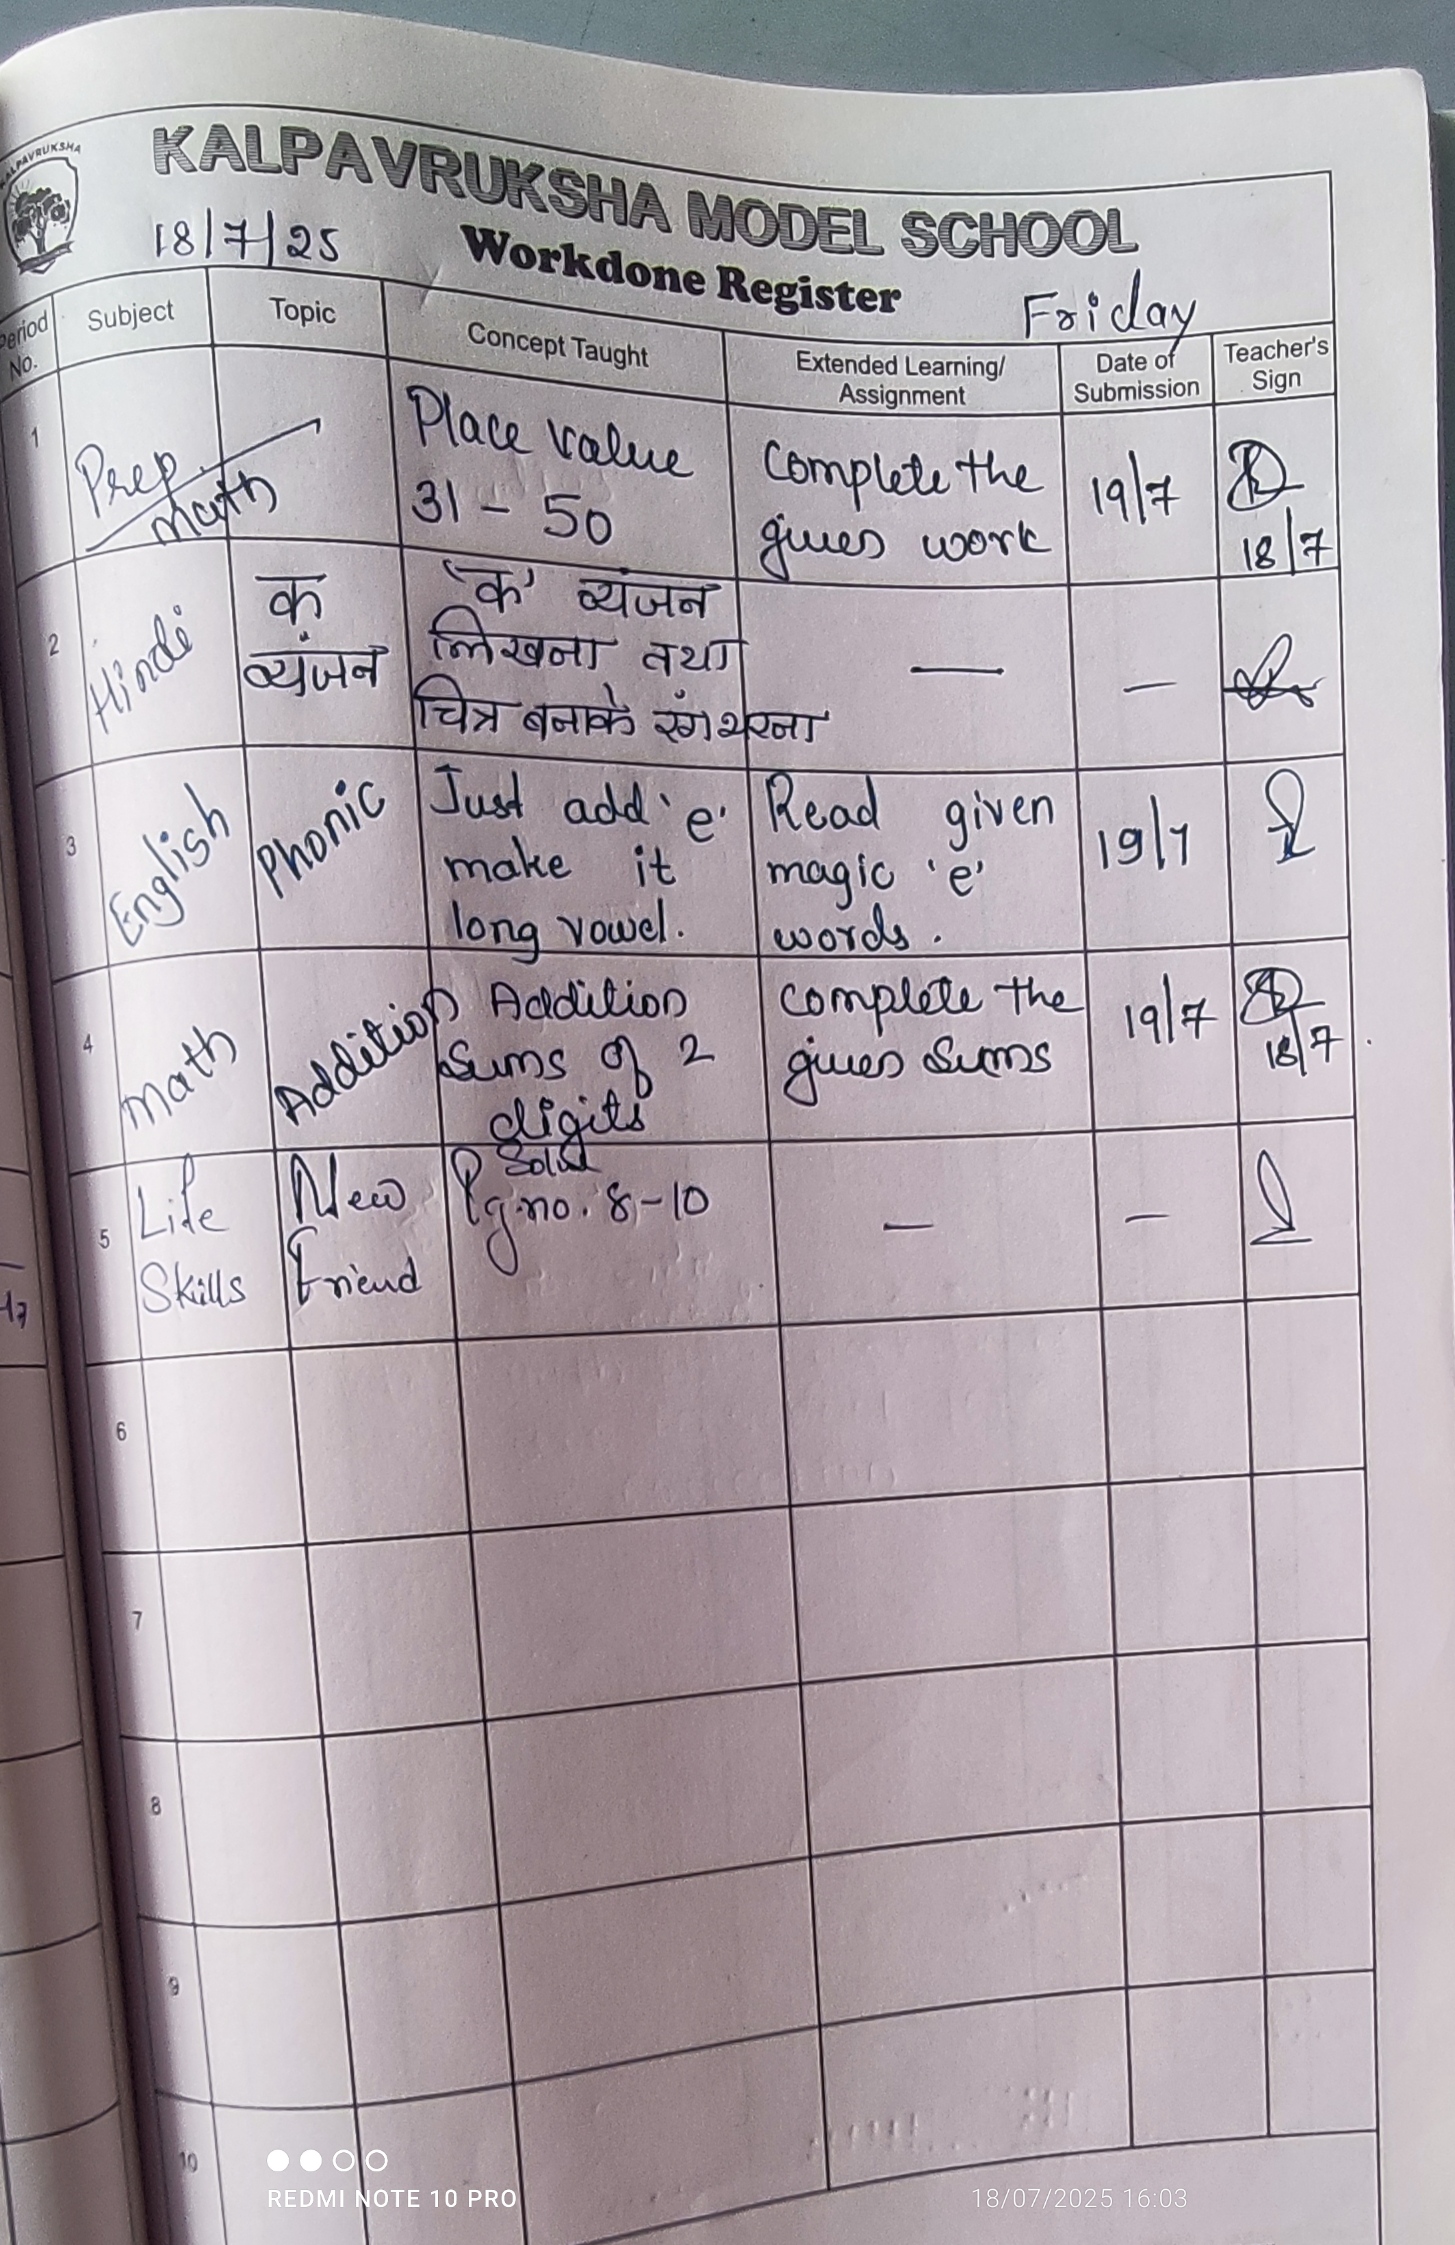 KALPAVRUKSHA
KALPAVRUKSHA MODEL SCHOOL
18/7/25
Workdone Register
Friday
Period No.
Subject
Topic
Concept Taught
Extended Learning/ Assignment
Date of Submission
Teacher's Sign
1
Prep
Math
Place value
31 - 50
Complete the
given work
19/7
18/7
2
Hindi
क
व्यंजन
'क' व्यंजन
लिखना तथा
चित्र बनाके रंग भरना
—
—
3
English
Phonic
Just add 'e'
make it
long vowel.
Read given
magic 'e'
words.
19/7
4
Math
Addition
Addition
Sums of 2
digits
Complete the
given Sums
19/7
18/7
5
Life
Skills
New
Friend
Pg.no. 8-10
—
—
6
7
8
9
10
REDMI NOTE 10 PRO
18/07/2025 16:03